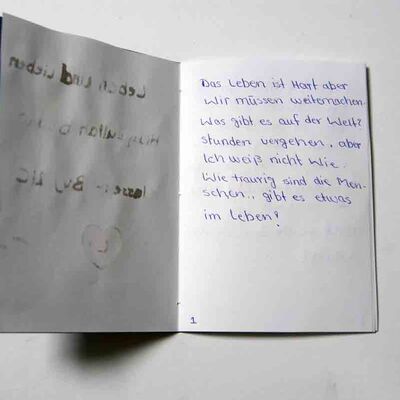 Leben Und Lieben
lassen By
Das Leben ist Hart aber
Wir müssen weitermachen.
Was gibt es auf der Welt?
Stunden vergehen, aber
Ich weiß nicht Wie.
Wie traurig sind die Men-
schen., gibt es etwas
im Leben?
1